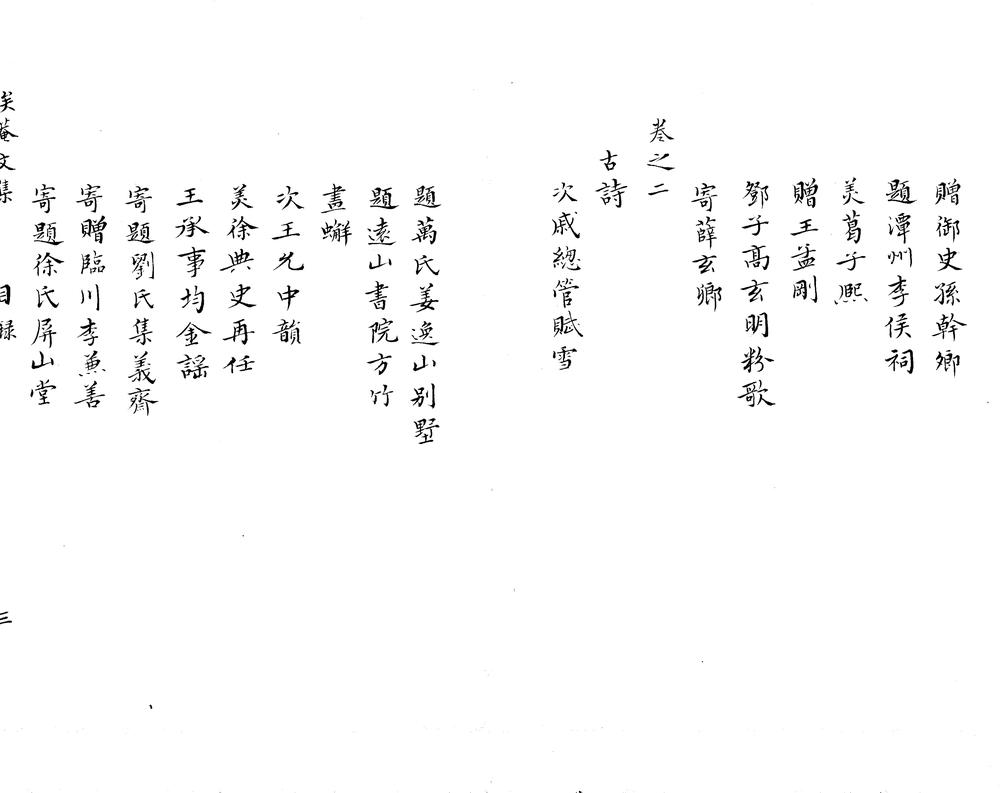 贈御史孫幹卿
題潭州李侯祠
美葛子熙
贈王孟剛
鄧子髙玄明粉歌
寄薛玄卿
卷之二
古詩
次戚總管賦雪
題萬氏姜逸山别墅
題遠山書院方竹
畫蠏
次王允中韻
美徐典史再任
王承事均金謡
寄題劉氏集義齋
寄贈臨川李兼善
寄題徐氏屏山堂
俟菴文集 目録 三